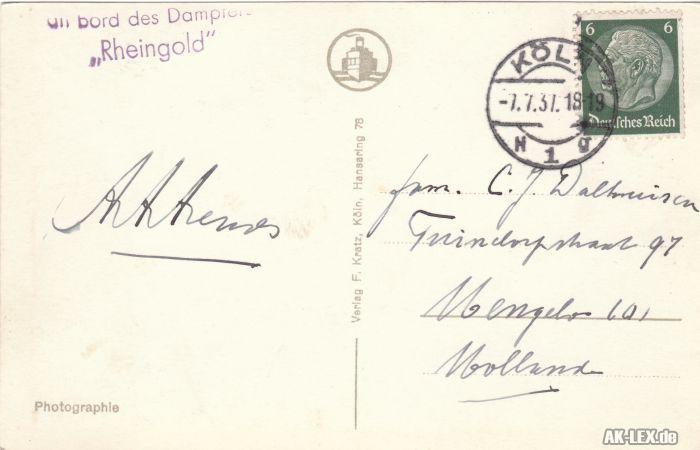 an Bord des Dampfers
„Rheingold”
6 6
Deutsches Reich
KÖLN
-7.7.37. 18-19
N 1 g
Verlag F. Kratz, Köln, Hansaring 78
Fam. C. J.
97
Hengelo (O)
Holland
Photographie
AK-LEX.de